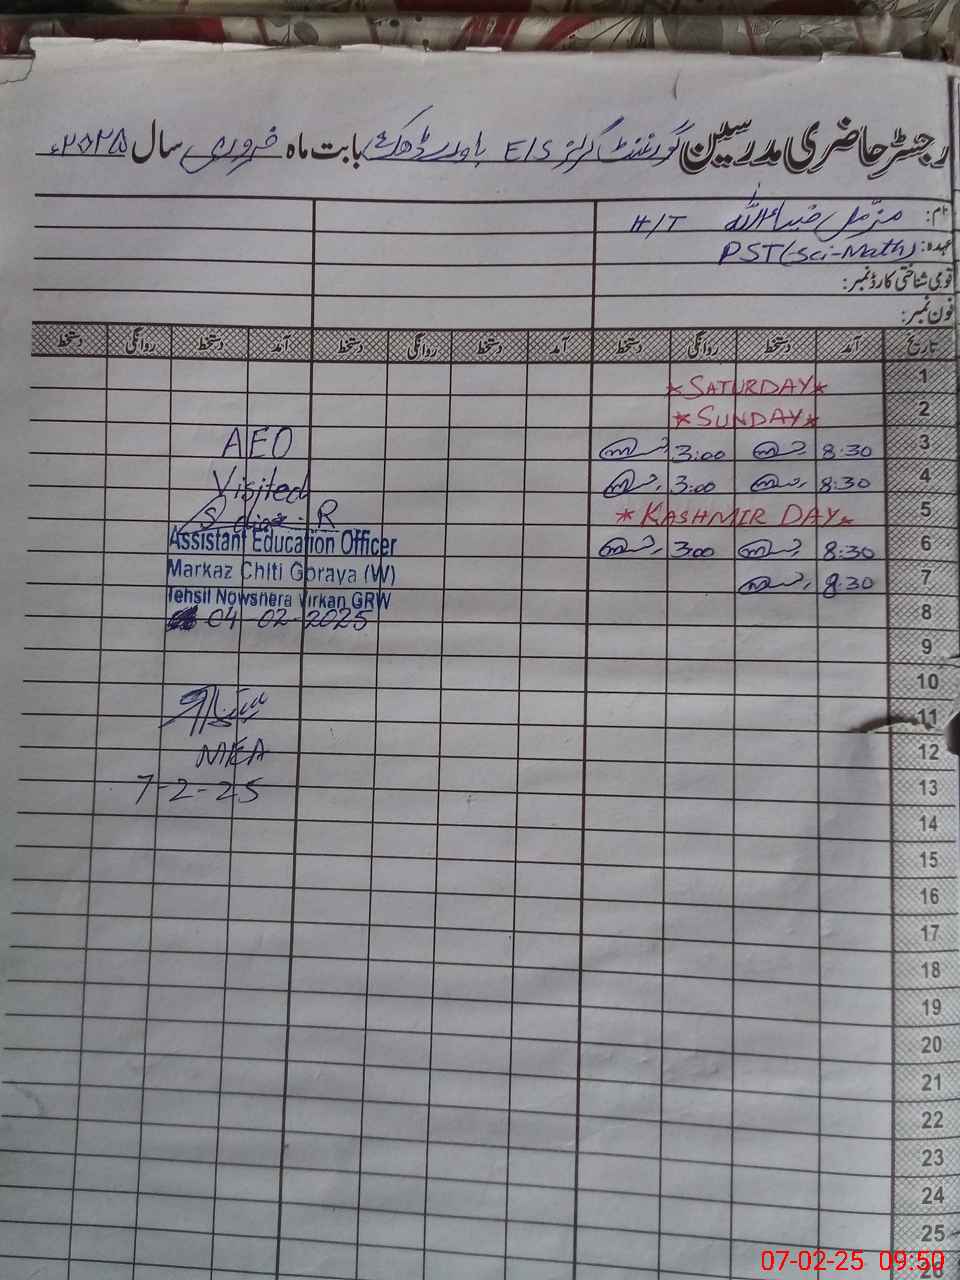 رجسٹر حاضری مدرسین گورنمنٹ گرلز E/S بابت ماہ فروری سال ۲۰۲۵ء
نام: مزمل ضیاءاللہ H/T
عہدہ: PST(Sci-Math)
قومی شناختی کارڈ نمبر:
فون نمبر:
تاریخ آمد دستخط روانگی دستخط آمد دستخط روانگی دستخط آمد دستخط روانگی دستخط
1 *SATURDAY*
2 *SUNDAY*
3 8:30 3:00
4 8:30 3:00
5 *KASHMIR DAY*
6 8:30 3:00
7 8:30
8
9
10
11
12
13
14
15
16
17
18
19
20
21
22
23
24
25
26
AEO
Visited
Assistant Education Officer
Markaz Chiti Goraya (W)
Tehsil Nowshera Virkan GRW
04-02-2025
MEA
7-2-25
07-02-25 09:50